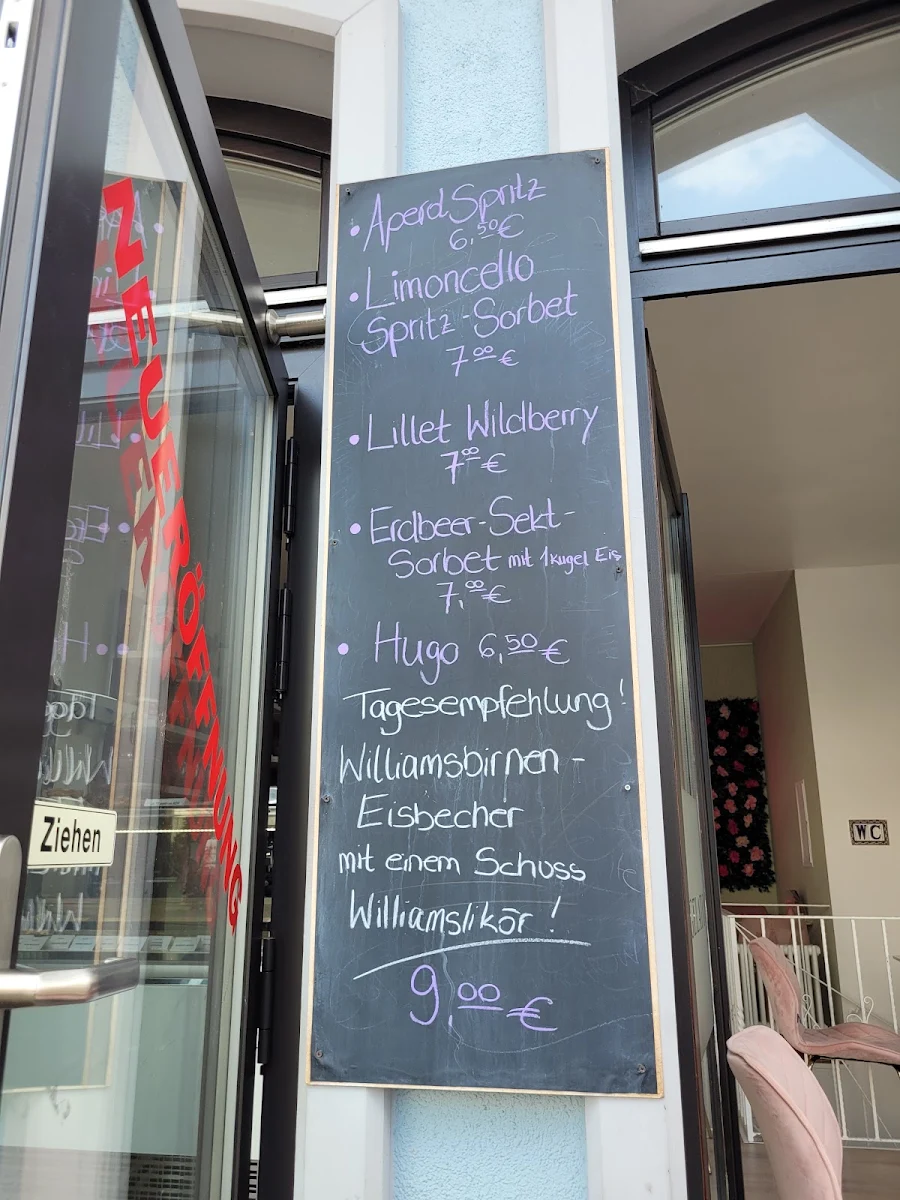 • Aperol Spritz
6,50€
• Limoncello
Spritz-Sorbet
7 00 €
• Lillet Wildberry
7 00 €
• Erdbeer-Sekt-
Sorbet mit 1 kugel Eis
7,00€
• Hugo 6,50 €
Tagesempfehlung!
Williamsbirnen-
Eisbecher
mit einem Schuss
Williamslikör!
9,00 €
NEUERÖFFNUNG
Ziehen
WC